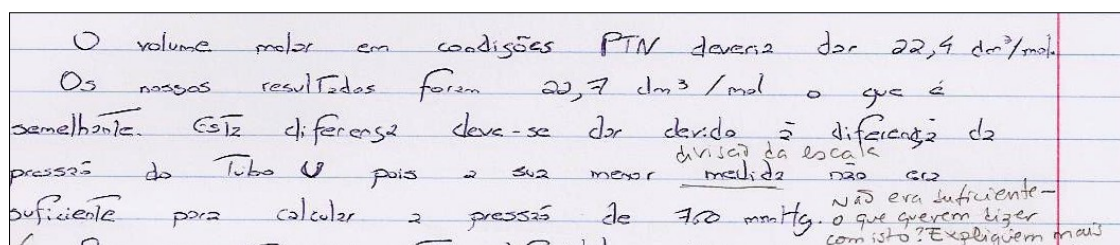 O volume molar em condições PTN deveria dar 22,4 dm³/mol.
Os nossos resultados foram 22,7 dm³/mol o que é
semelhante. Esta diferença deve-se dar devido à diferença da
divisão da escala
pressão do Tubo U pois a sua menor medida não era
suficiente para calcular a pressão de 760 mmHg.
Não era suficiente -
o que querem dizer
com isto? Expliquem mais